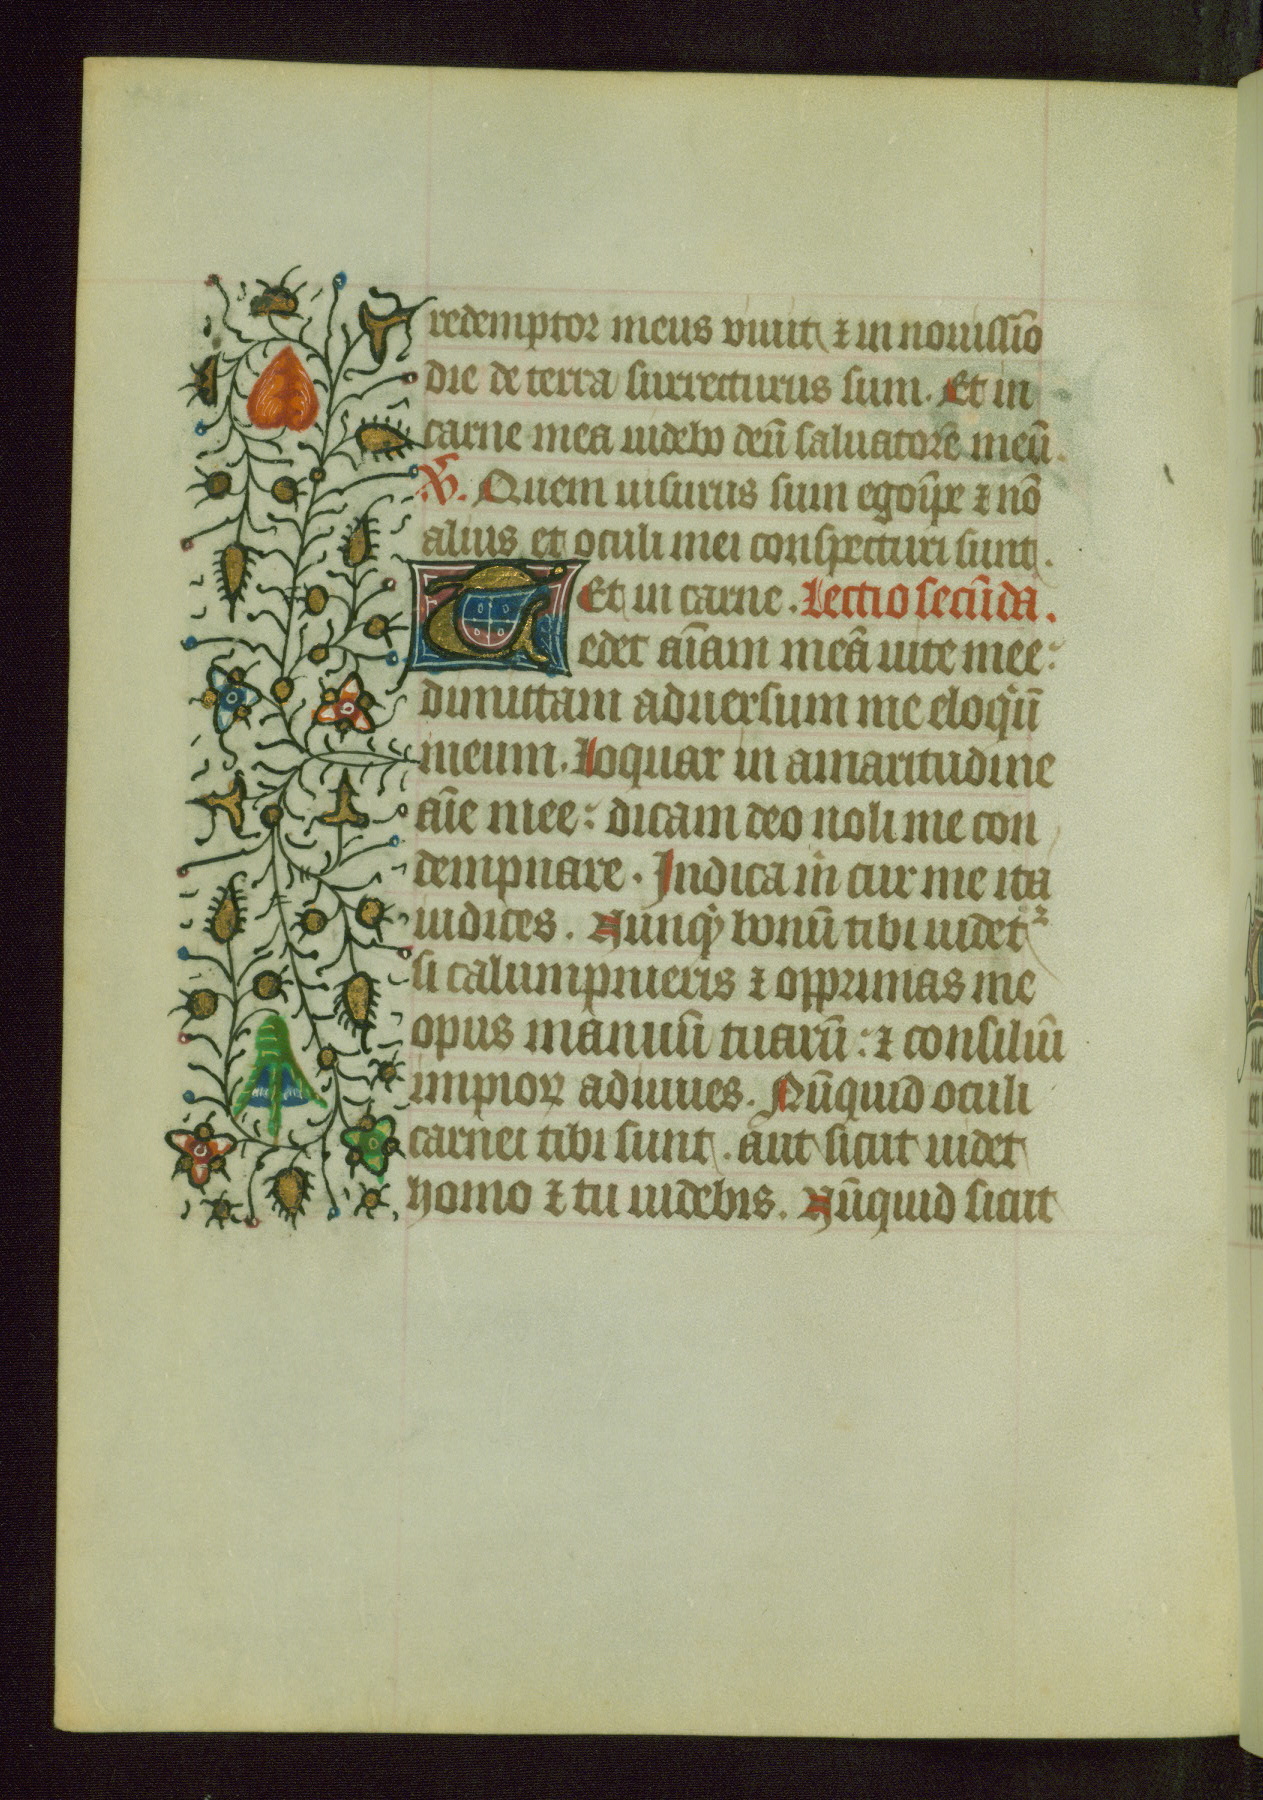 redemptor meus viuit ⁊ in nouissīo
die de terra surrecturus sum. Et in
carne mea uidebo deū saluatorē meū.
V̄. Quem uisurus sum ego ip̄e ⁊ nō
alius et oculi mei conspecturi sunt.
Et in carne. Lectio secūda.
Tedet aīam meā uite mee:
dimittam aduersum me eloqⁱū
meum. Loquar in amaritudine
aīe mee: dicam deo noli me con
dempnare. Indica mⁱ cur me ita
iudices. Nunqͥ bonū tibi uidetᷣ
si calumpnieris ⁊ opprimas me
opus manuū tuarū: ⁊ consiliū
impioꝝ adiuues. Nūquid oculi
carnei tibi sunt. aut sicut uidet
homo ⁊ tu uidebis. Nūquid sicut